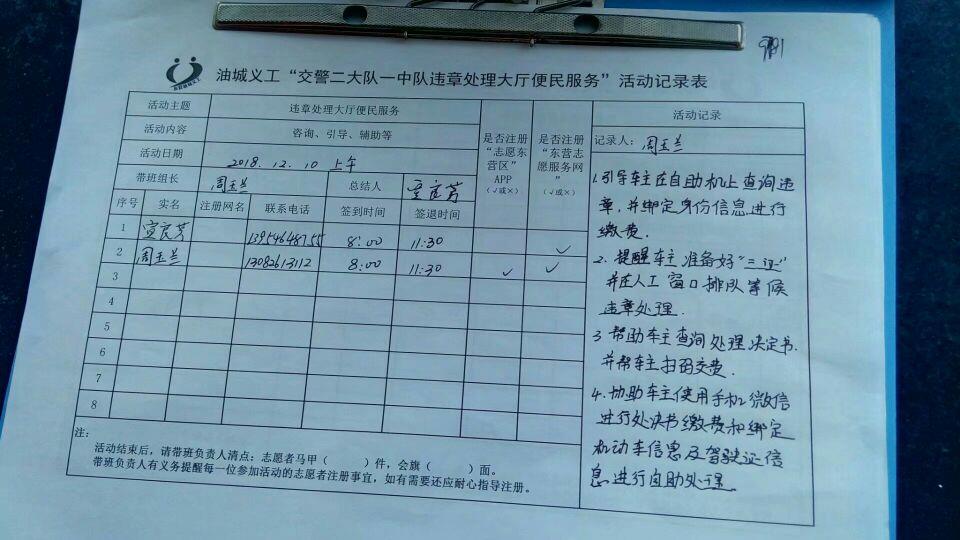 油城义工“交警二大队一中队违章处理大厅便民服务”活动记录表
活动主题 违章处理大厅便民服务
活动内容 咨询、引导、辅助等
活动日期 2018.12.10 上午
带班组长 周玉兰 总结人 宣良芳
是否注册“志愿东营区”APP（√或×）
是否注册“东营志愿服务网”（√或×）
序号 实名 注册网名 联系电话 签到时间 签退时间
1 宣良芳 13954648755 8:00 11:30 √
2 周玉兰 13082613112 8:00 11:30 √ √
3
4
5
6
7
8
注：
活动结束后，请带班负责人清点：志愿者马甲（ ）件，会旗（ ）面。
带班负责人有义务提醒每一位参加活动的志愿者注册事宜，如有需要还应耐心指导注册。
活动记录
记录人：周玉兰
1.引导车主在自助机上查询违
章，并绑定身份信息进行
缴费.
2.提醒车主准备好“三证”
并在人工窗口排队等候
违章处理.
3 帮助车主查询处理决定书.
并帮车主扫码交费.
4.协助车主使用手机微信
进行处决书缴费和绑定
机动车信息及驾驶证信
息进行自助处理.